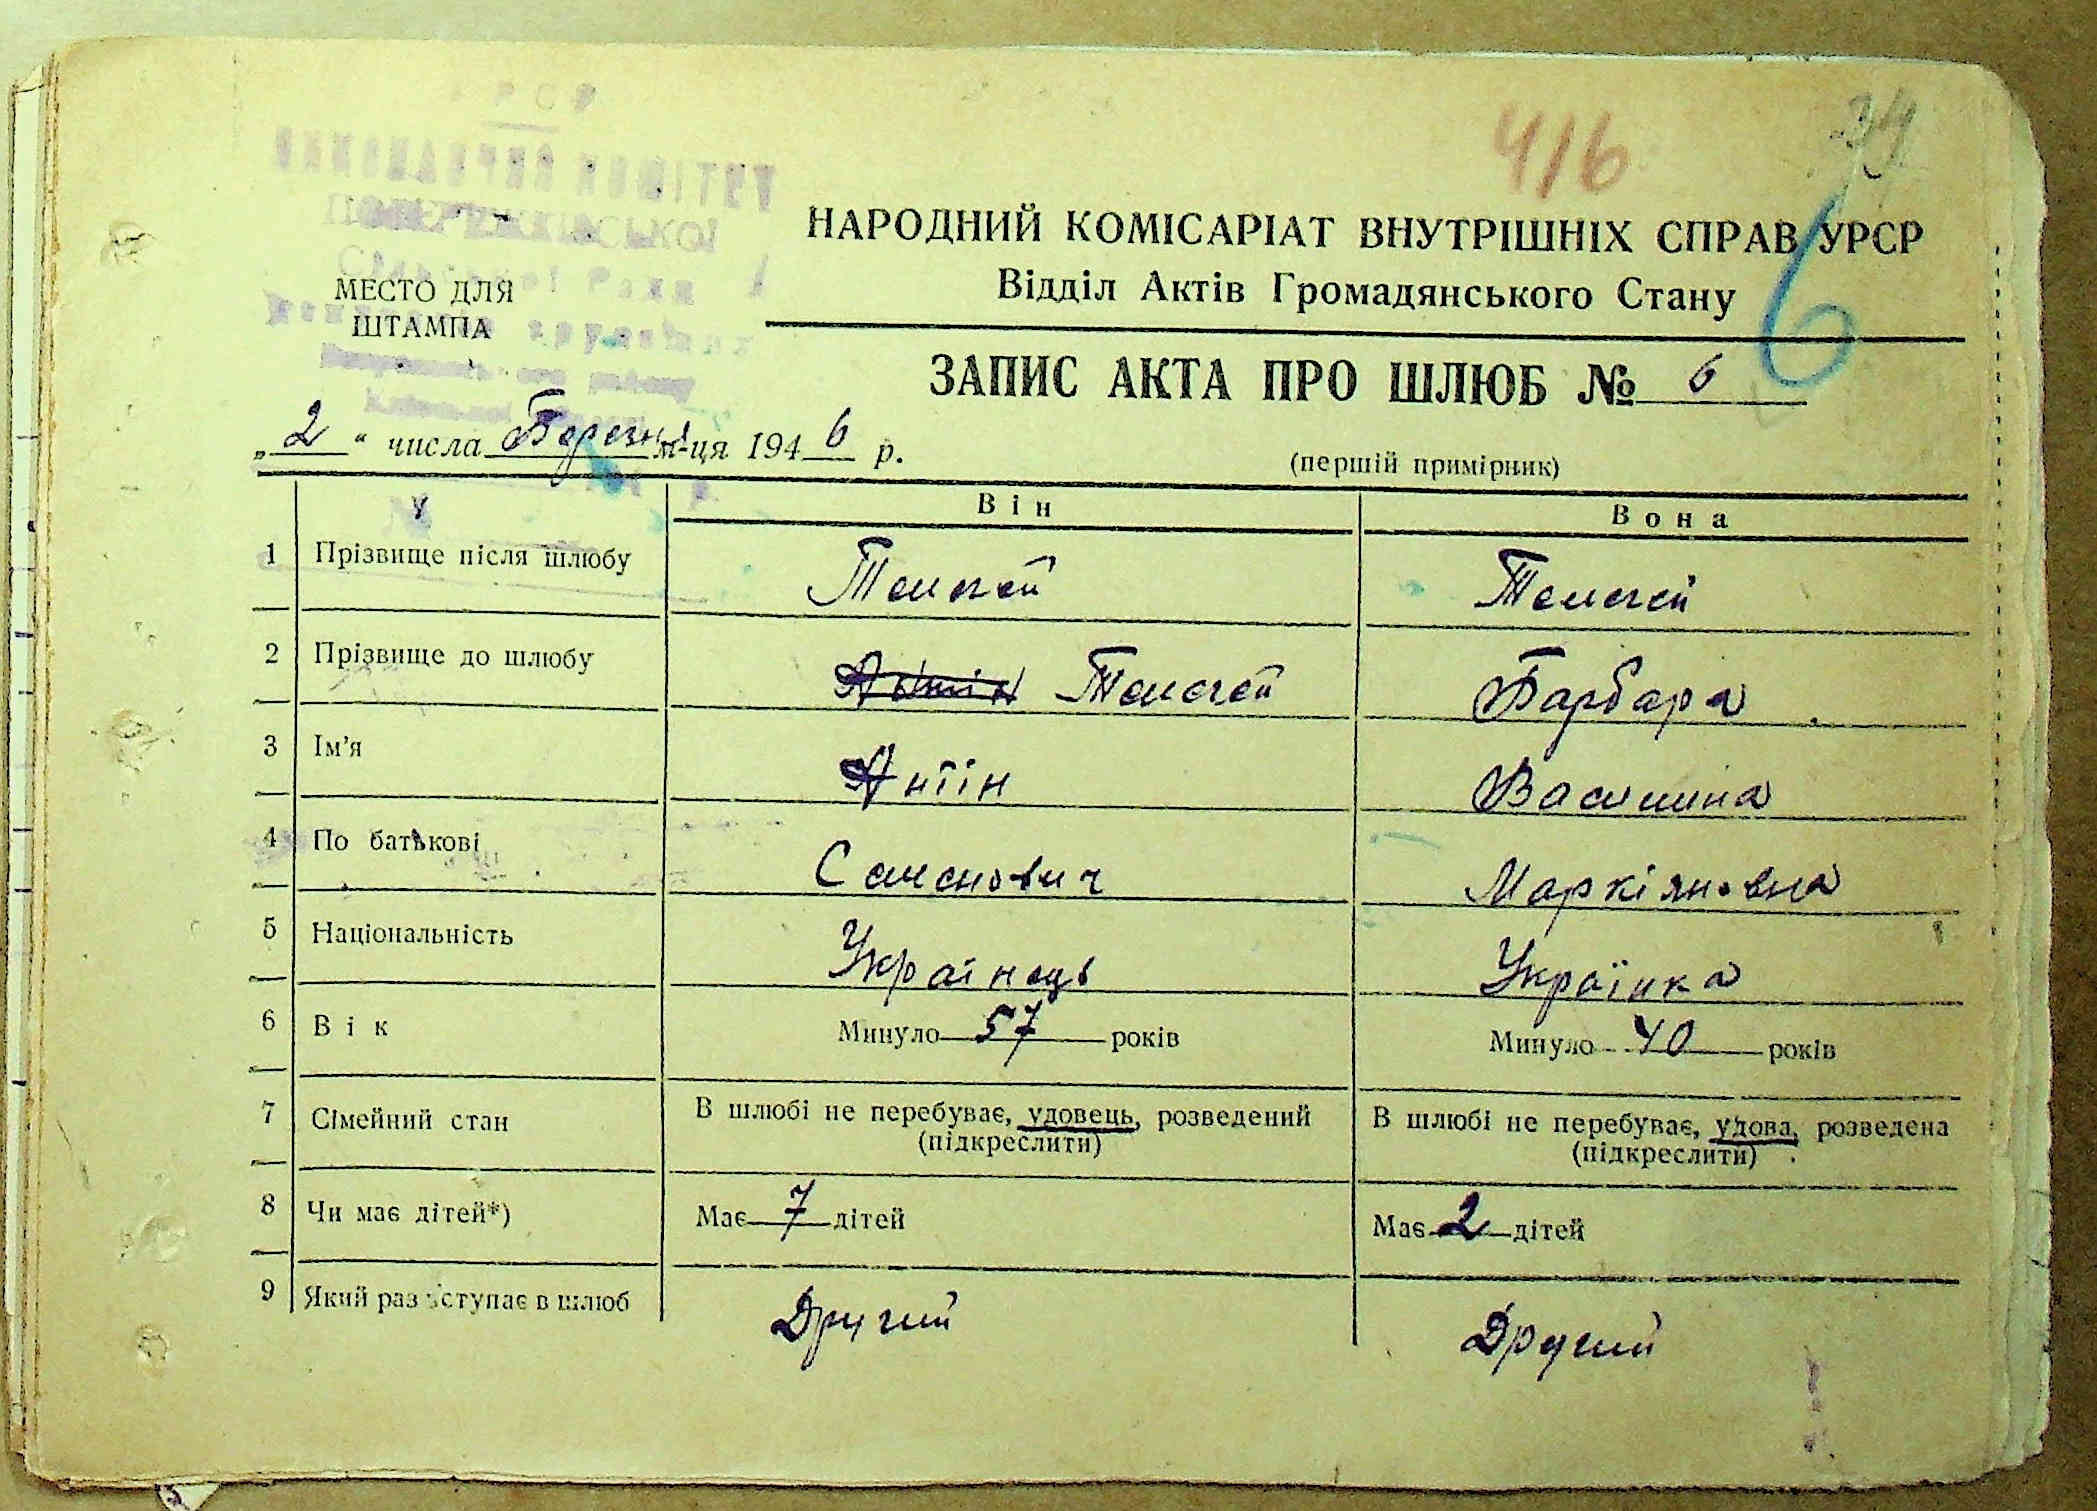 РСР
ВИКОНАВЧИЙ КОМІТЕТ
Сільської Ради
416
34
6
МЕСТО ДЛЯ
ШТАМПА
НАРОДНИЙ КОМІСАРІАТ ВНУТРІШНІХ СПРАВ УРСР
Відділ Актів Громадянського Стану
ЗАПИС АКТА ПРО ШЛЮБ № 6
„2“ числа Березня м-ця 1946 р.
(першій примірник)
Він Вона
1 Прізвище після шлюбу Телегей Телегей
2 Прізвище до шлюбу Антін Телегей Барбара
3 Ім'я Антін Василина
4 По батькові Семенович Маркіяновна
5 Національність Українець Українка
6 Вік Минуло 57 років Минуло 40 років
7 Сімейний стан В шлюбі не перебуває, удовець, розведений (підкреслити) В шлюбі не перебуває, удова, розведена (підкреслити)
8 Чи має дітей*) Має 7 дітей Має 2 дітей
9 Який раз вступає в шлюб Другий Другий